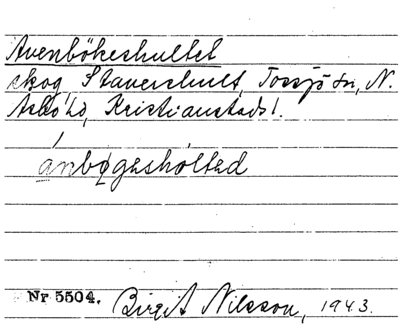 Avenbökeshultet
skog, Stavershult, Tossjö sn, N.
Åsbo hd, Kristianstads l.
ánbøgeshólted
Nr 5504. Birgit Nilsson, 1943.